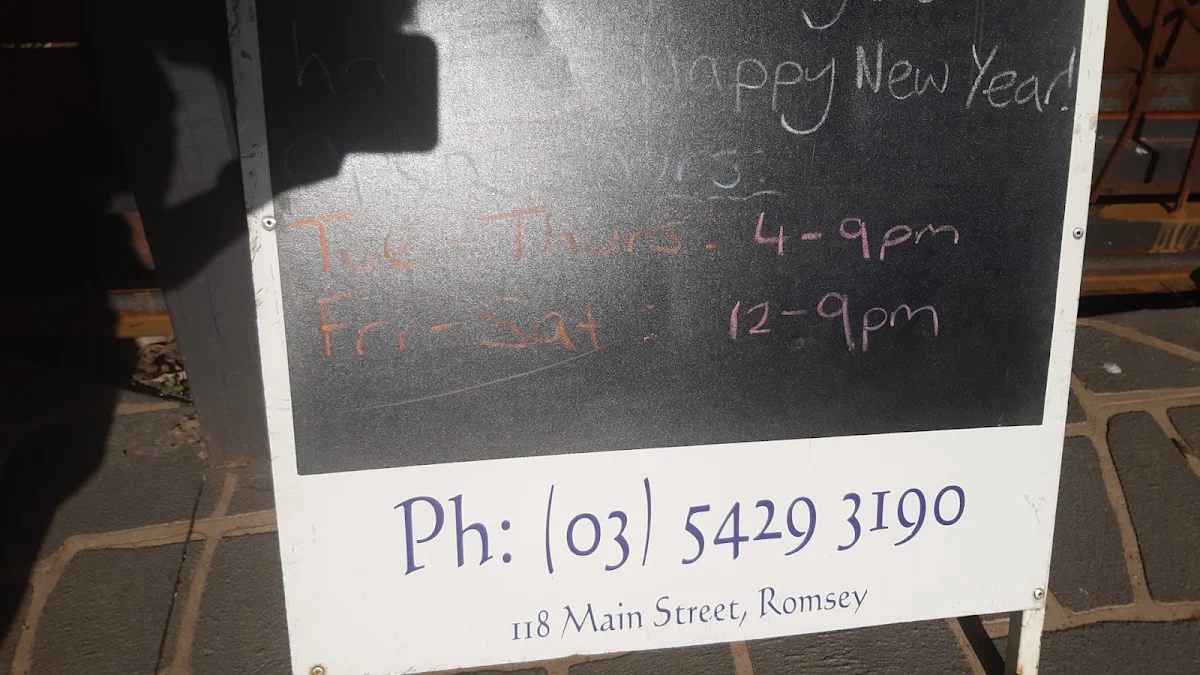 happy New Year!
Open hours:
Tue - Thurs: 4-9pm
Fri - Sat: 12-9pm
Ph: (03) 5429 3190
118 Main Street, Romsey